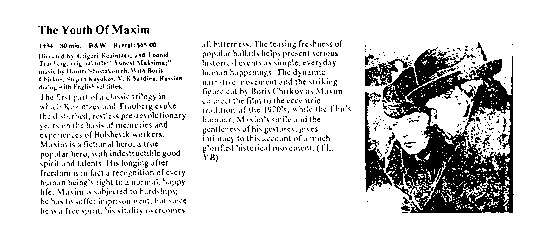 The Youth Of Maxim
1934 80 min. B&W Rental: $65.00
Directed by Grigori Kozintsev and Leonid
Trauberg, original title: "Yunost Maksima;"
music by Dmitri Shostakovich. With Boris
Chirkov, Stepan Kayukov, V. Kibardina. Russian
dialog with English subtitles.
The first part of a classic trilogy in
which Kozintsev and Trauberg evoke
the disturbed, restless pre-revolutionary
years on the basis of memories and
experiences of Bolshevik workers.
Maxim is a fictional hero, a true
popular hero, with indestructible good
spirit and talents. His longing after
freedom is in fact a recognition of every
human being's right to a normal, happy
life. Maxim is subjected to hardships;
he has to suffer imprisonment, but since
he is a free spirit, his vitality overcomes
all bitterness. The teasing freshness of
popular ballads helps present serious
historical events as simple, everyday
human happenings. The dynamic
narrative movement and the striking
figure cut by Boris Chirkov as Maxim
connect the film to the eccentric
tradition of the 1920's, while the film's
humour, Maxim's smile and the
gentleness of his gestures, gives
intimacy to this account of a much
glorified historical movement.